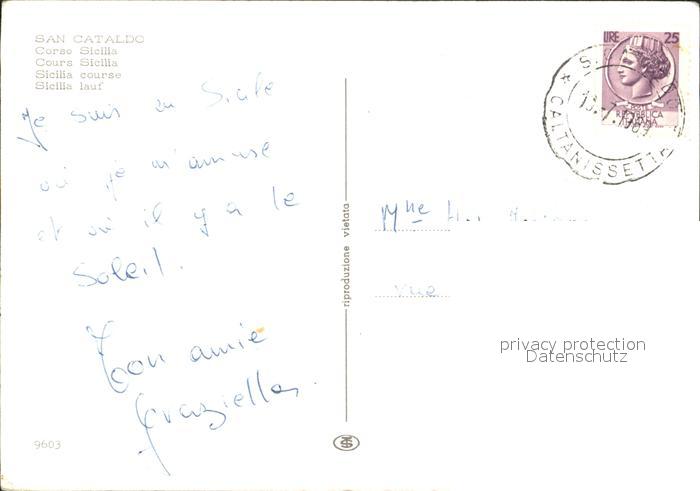 SAN CATALDO
Corso Sicilia
Cours Sicilia
Sicilia course
Sicilia lauf
Je suis en Sicile
où je m'amuse
et où il y a le
soleil.
Ton amie
Graziella.
9603
riproduzione vietata
LIRE 25
REPUBBLICA
ITALIANA
CALTANISSETTA
Mlle
rue
privacy protection
Datenschutz